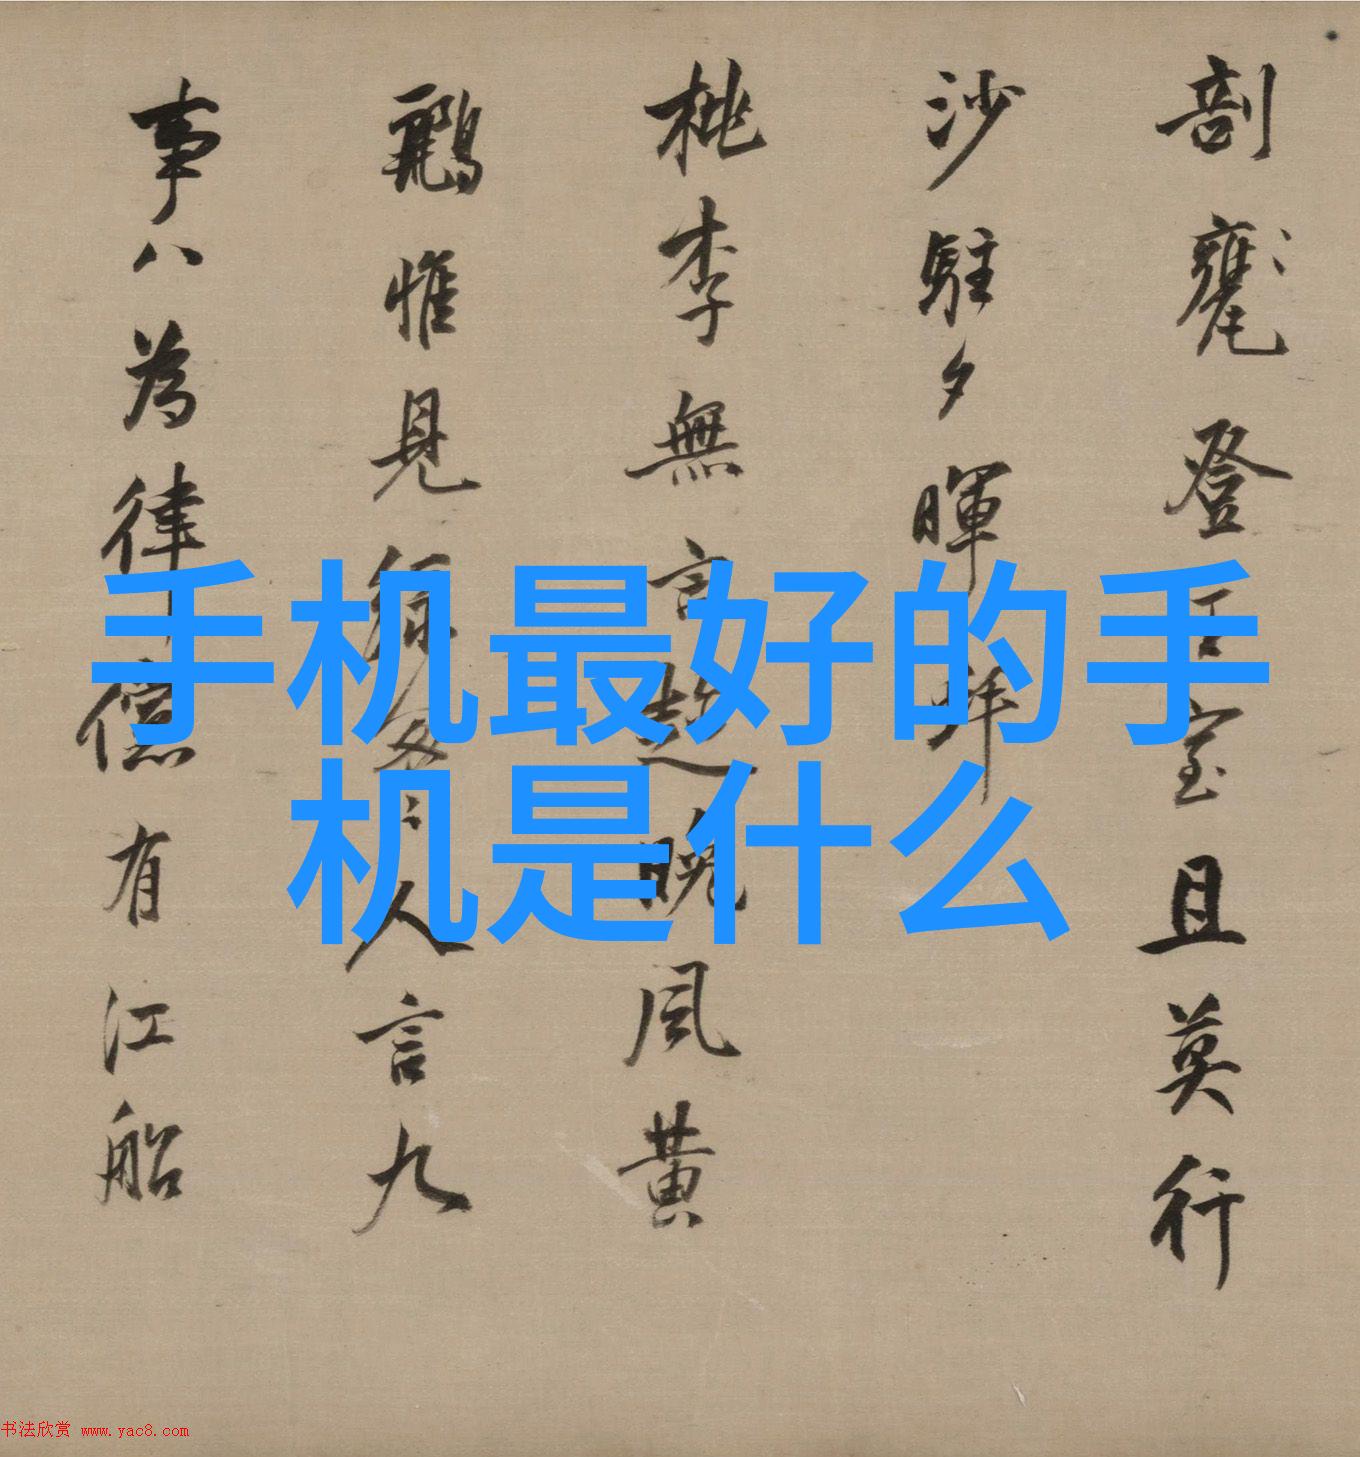 手机最好的手
机是什么
剖甕登江室且莫行
沙駐夕暉
桃李無言
晚風黃
鷗惟見
人言九
事八為律
有江船
书法欣赏 www.yac8.com